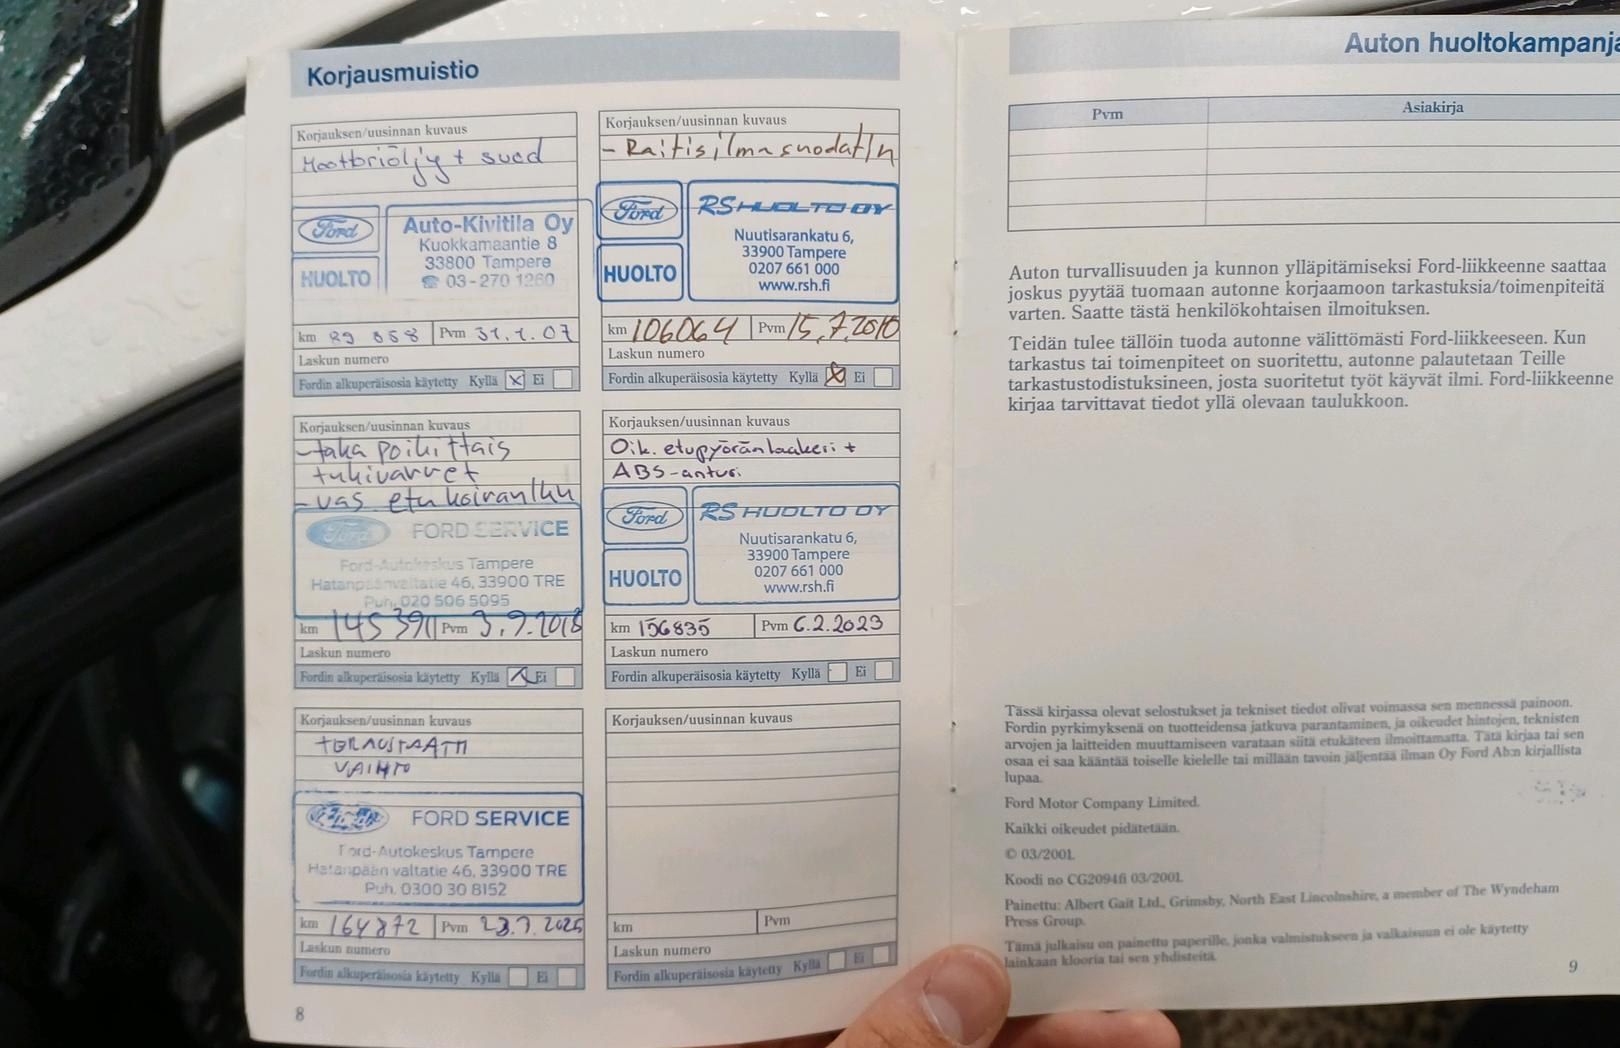 Korjausmuistio
Korjauksen/uusinnan kuvaus
Moottoriöljy + suod
Ford
HUOLTO
Auto-Kivitila Oy
Kuokkamaantie 8
33800 Tampere
☎ 03-270 1260
km 89 858 Pvm 31.1.07
Laskun numero
Fordin alkuperäisosia käytetty Kyllä X Ei
Korjauksen/uusinnan kuvaus
-taka poikittais
tukivarret
-vas etu koiranluu
Ford
FORD SERVICE
Ford-Autokeskus Tampere
Hatanpäänvaltatie 46, 33900 TRE
Puh. 020 506 5095
km 145390 Pvm 3.9.2018
Laskun numero
Fordin alkuperäisosia käytetty Kyllä X Ei
Korjauksen/uusinnan kuvaus
VAIHTO
FORD SERVICE
Ford-Autokeskus Tampere
Hatanpään valtatie 46, 33900 TRE
Puh. 0300 30 8152
km 164872 Pvm 23.7.2025
Laskun numero
Fordin alkuperäisosia käytetty Kyllä Ei
8
Korjauksen/uusinnan kuvaus
- Raitisilmasuodatin
Ford
HUOLTO
RS HUOLTO OY
Nuutisarankatu 6,
33900 Tampere
0207 661 000
www.rsh.fi
km 106064 Pvm 15.7.2010
Laskun numero
Fordin alkuperäisosia käytetty Kyllä X Ei
Korjauksen/uusinnan kuvaus
Oik. etupyöränlaakeri +
ABS-anturi
Ford
HUOLTO
RS HUOLTO OY
Nuutisarankatu 6,
33900 Tampere
0207 661 000
www.rsh.fi
km 156835 Pvm 6.2.2023
Laskun numero
Fordin alkuperäisosia käytetty Kyllä Ei
Korjauksen/uusinnan kuvaus
km Pvm
Laskun numero
Fordin alkuperäisosia käytetty Kyllä Ei
Auton huoltokampanja
Pvm Asiakirja
Auton turvallisuuden ja kunnon ylläpitämiseksi Ford-liikkeenne saattaa
joskus pyytää tuomaan autonne korjaamoon tarkastuksia/toimenpiteitä
varten. Saatte tästä henkilökohtaisen ilmoituksen.
Teidän tulee tällöin tuoda autonne välittömästi Ford-liikkeeseen. Kun
tarkastus tai toimenpiteet on suoritettu, autonne palautetaan Teille
tarkastustodistuksineen, josta suoritetut työt käyvät ilmi. Ford-liikkeenne
kirjaa tarvittavat tiedot yllä olevaan taulukkoon.
Tässä kirjassa olevat selostukset ja tekniset tiedot olivat voimassa sen mennessä painoon.
Fordin pyrkimyksenä on tuotteidensa jatkuva parantaminen, ja oikeudet hintojen, teknisten
arvojen ja laitteiden muuttamiseen varataan siitä etukäteen ilmoittamatta. Tätä kirjaa tai sen
osaa ei saa kääntää toiselle kielelle tai millään tavoin jäljentää ilman Oy Ford Ab:n kirjallista
lupaa.
Ford Motor Company Limited.
Kaikki oikeudet pidätetään.
© 03/2001.
Koodi no CG2094fi 03/2001.
Painettu: Albert Gait Ltd., Grimsby, North East Lincolnshire, a member of The Wyndeham
Press Group.
Tämä julkaisu on painettu paperille, jonka valmistukseen ja valkaisuun ei ole käytetty
lainkaan klooria tai sen yhdisteitä.
9